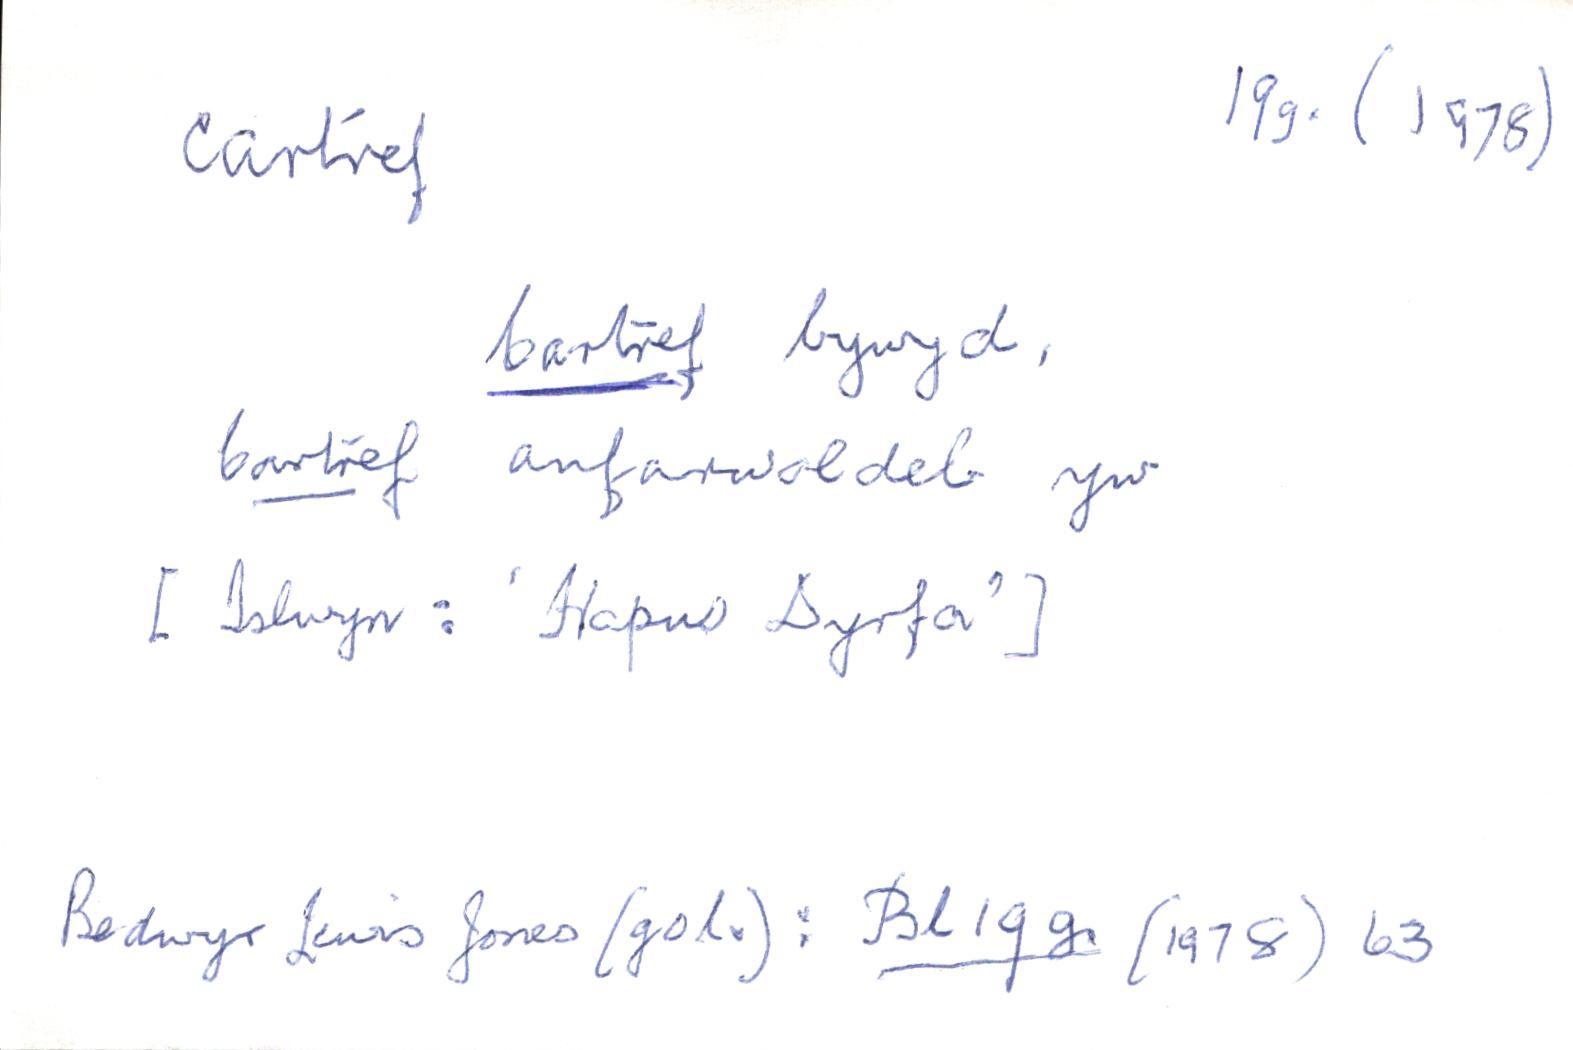 cartref 19g. (1978)
bartref bywyd,
bartref anfarwoldeb yw
[Islwyn: 'Hapus Dyrfa']
Bedwyr Lewis Jones (gol.): Bl 19g. (1978) 63